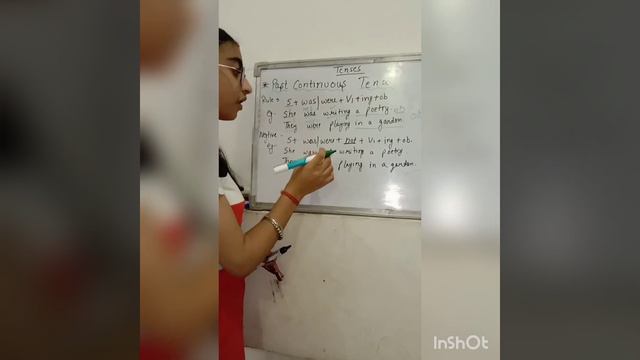 Tenses
* Past Continuous Tens
Rule → S + was | were + V1 + ing + ob
eg. She was writing a poetry
They were playing in a garden
S + was | were + not + V1 + ing + ob.
eg. She writing a poetry
playing in a garden.
InShOt